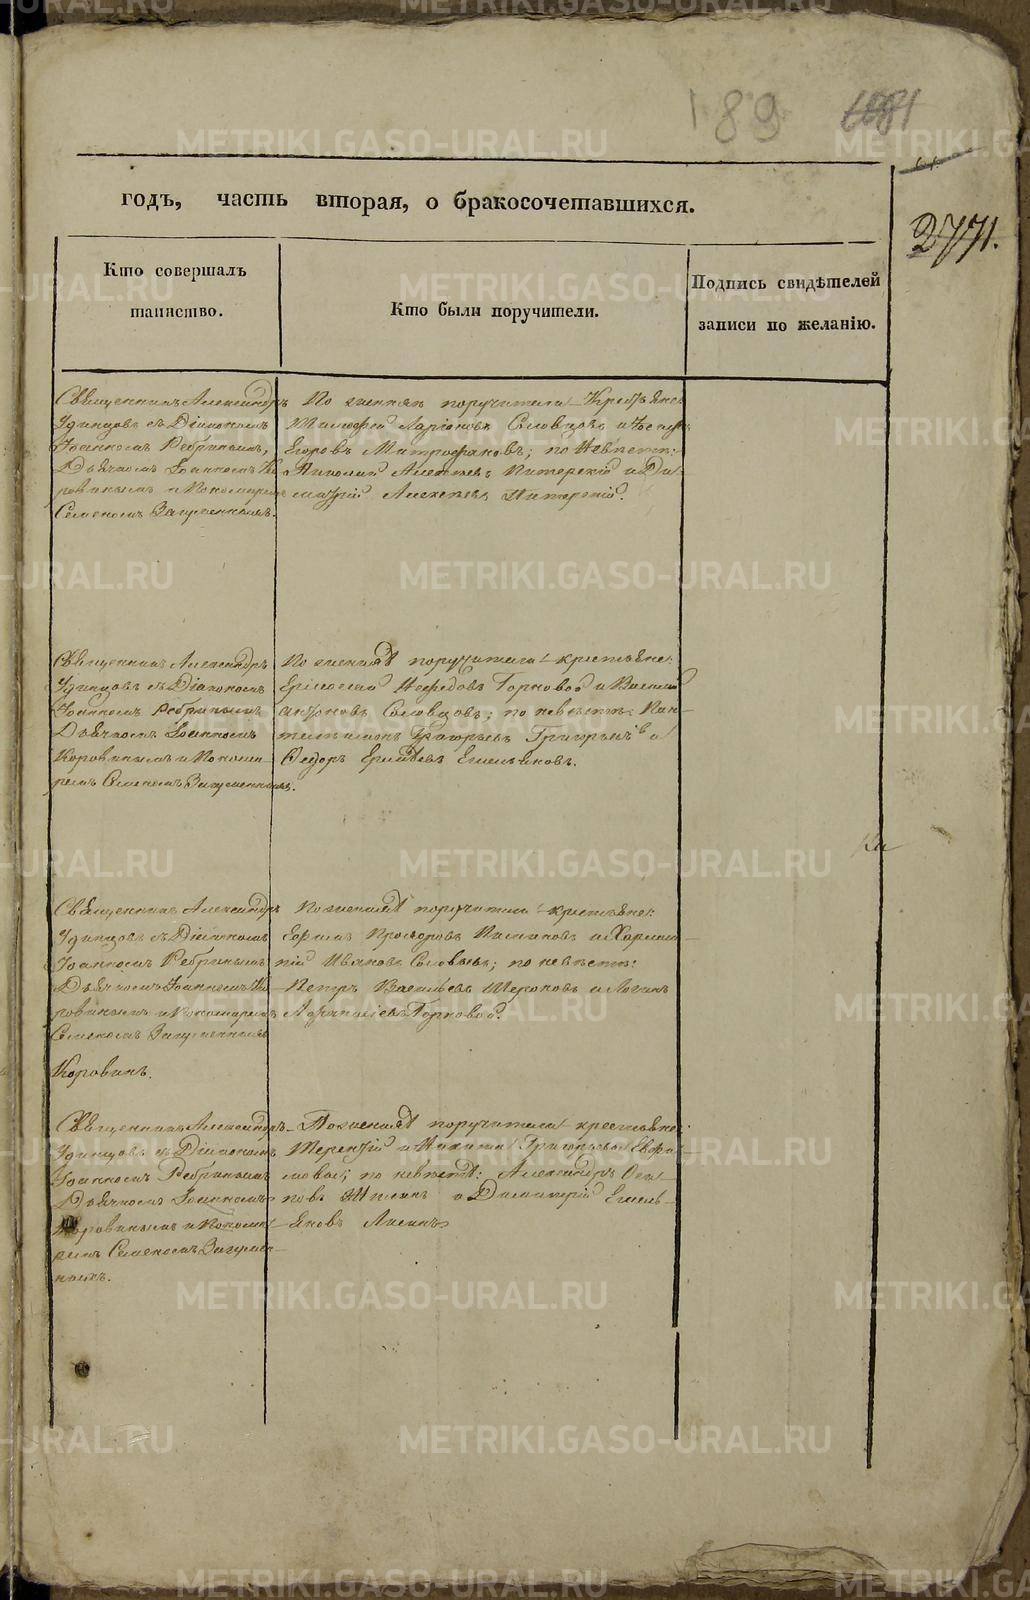 189
2771.
годъ, часть вторая, о бракосочетавшихся.
Кто совершалъ
таинство.
Кто были поручители.
Подпись свидѣтелей
записи по желанію.
Священникъ Александръ
Удинцовъ съ Діакономъ
Іоанномъ Ребринымъ,
Дьячкомъ Іоанномъ Ко
ровинымъ и Пономаремъ
Семеномъ Загуменнымъ.
По женихѣ поручители Крестьяне
Ларіоновъ Словцовъ и
Егоровъ Митрофановъ; по невѣстѣ:
Николай Алексѣевъ Питерскій и Ди
митрій Алексѣевъ Питерскій.
Священникъ Александръ
Удинцовъ съ Діакономъ
Іоанномъ Ребринымъ
Дьячкомъ Іоанномъ
Коровинымъ и Понома
ремъ Семеномъ Загуменнымъ.
По женихѣ поручители крестьяне:
Ермолай Нефедовъ Горновой и Василій
Антоновъ Словцовъ; по невѣстѣ: Пан-
телеимонъ Григорьевъ и
Федоръ Емельяновъ.
Священникъ Александръ
Удинцовъ съ Діакономъ
Іоанномъ Ребринымъ
Дьячкомъ Іоанномъ Ко
ровинымъ и Пономаремъ
Семеномъ Загуменнымъ
Коровинъ.
По женихѣ поручители крестьяне:
Прохоровъ и
Ивановъ Соловьевъ; по невѣстѣ:
Петръ Васильевъ и Логинъ
Горновой.
Священникъ Александръ
Удинцовъ съ Діакономъ
Іоанномъ Ребринымъ
Дьячкомъ Іоанномъ
Коровинымъ и Понома
ремъ Семеномъ Загумен-
нымъ.
По женихѣ поручители крестьяне:
Терентій и Никита Григорьевы
по невѣстѣ: Александръ Оси
повъ и Димитрій Емель-
яновъ
METRIKI.GASO-URAL.RU